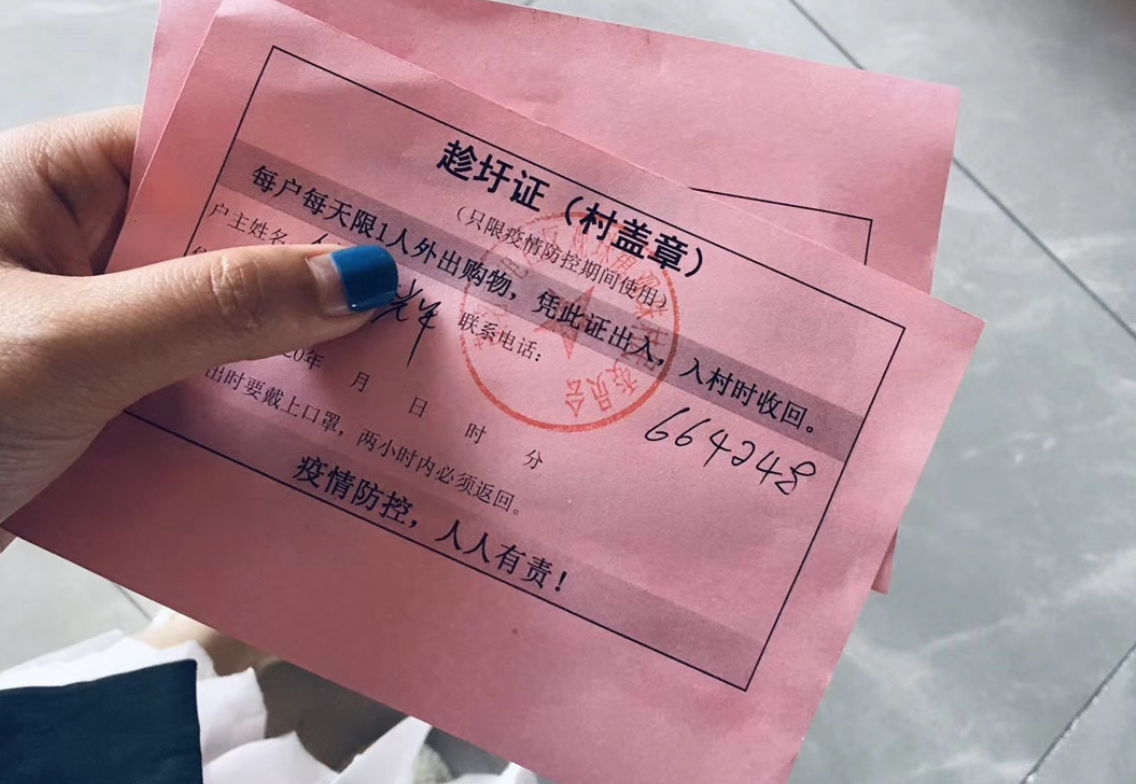 趁圩证（村盖章）
（只限疫情防控期间使用）
每户每天限1人外出购物，凭此证出入，入村时收回。
户主姓名
联系电话：
664248
20年 月 日 时 分
出时要戴上口罩，两小时内必须返回。
疫情防控，人人有责！
委员会